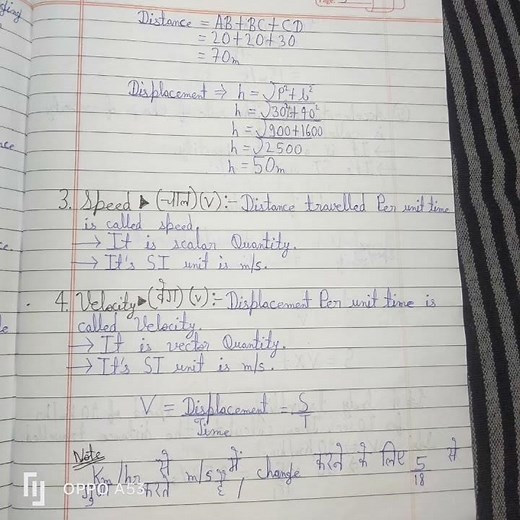 Distance = AB + BC + CD
= 20 + 20 + 30
= 70m
Displacement ⇒ h = √P²+b²
h = √30²+40²
h = √900+1600
h = √2500
h = 50m
3. Speed ▶ (चाल) (v) :- Distance travelled Per unit time
is called speed.
→ It is scalar Quantity.
→ It's SI unit is m/s.
4. Velocity ▶ (वेग) (v) :- Displacement Per unit time is
called Velocity.
→ It is vector Quantity.
→ It's SI unit is m/s.
V = Displacement = S
Time T
Note
Km/hr से m/s में change करने के लिए 5 से
18
करते हैं,
OPPO A53